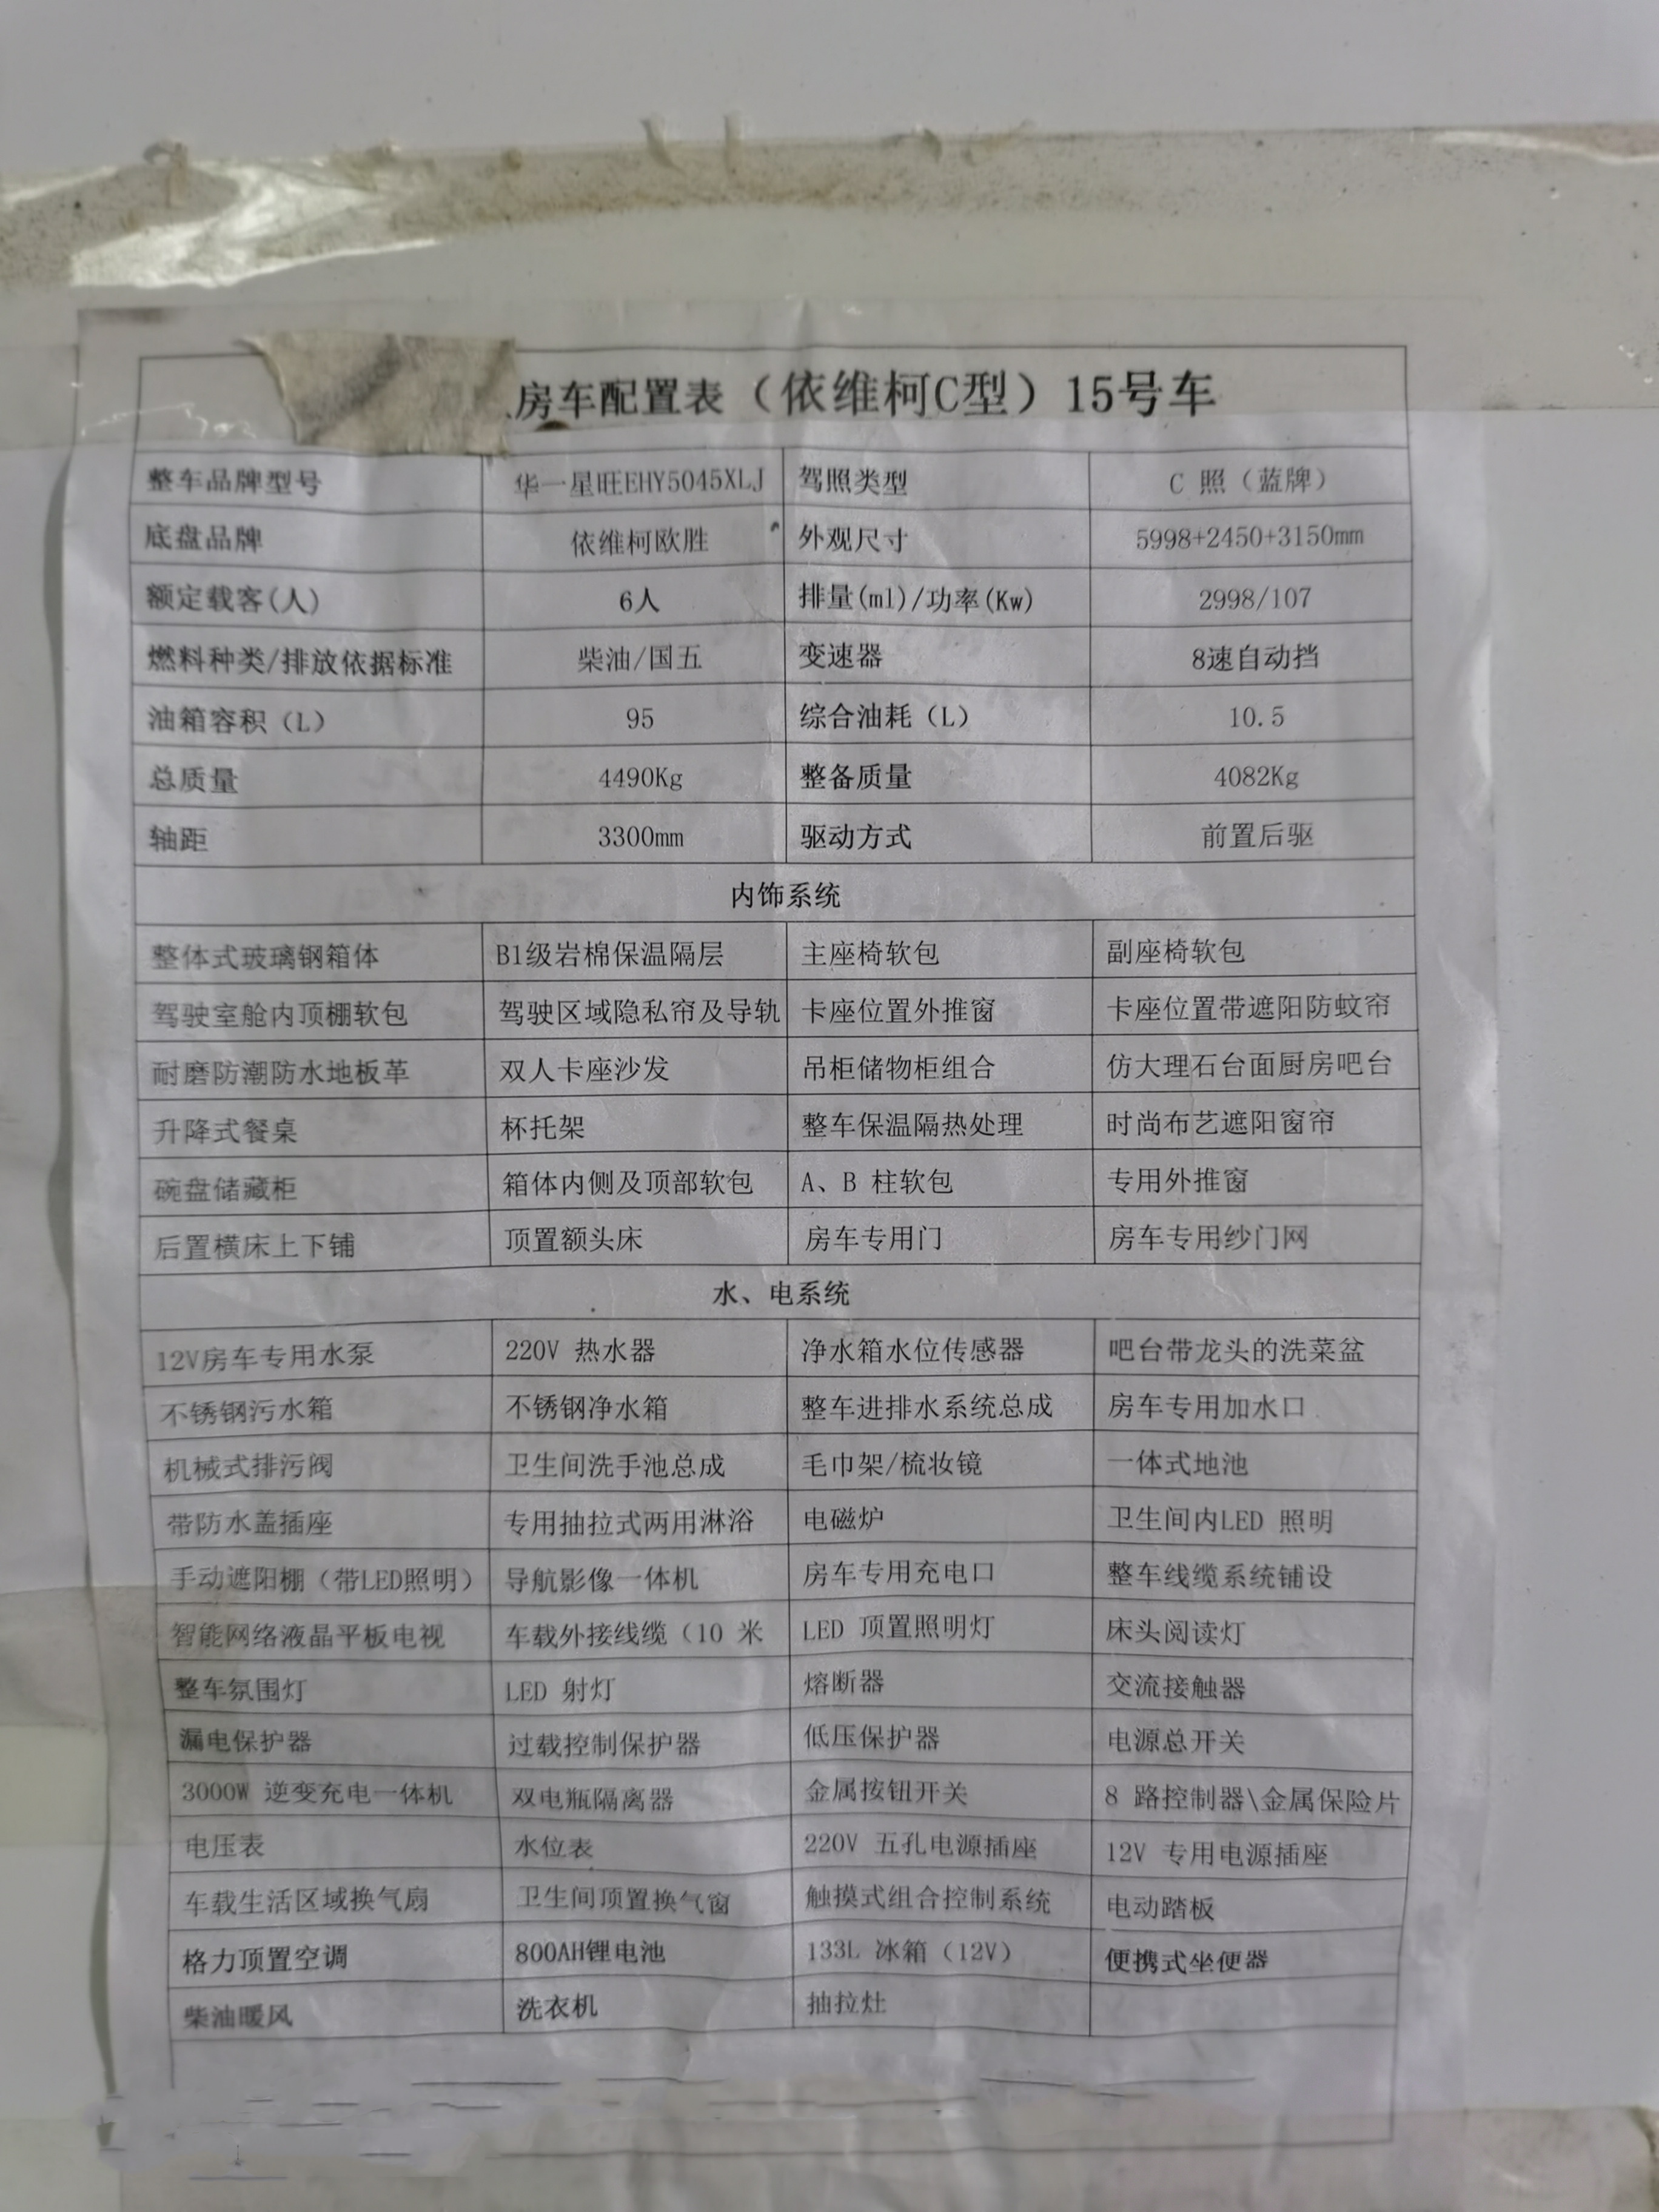 房车配置表（依维柯C型）15号车
整车品牌型号 华一星旺EHY5045XLJ 驾照类型 C 照（蓝牌）
底盘品牌 依维柯欧胜 外观尺寸 5998+2450+3150mm
额定载客(人) 6人 排量(ml)/功率(Kw) 2998/107
燃料种类/排放依据标准 柴油/国五 变速器 8速自动挡
油箱容积（L） 95 综合油耗（L） 10.5
总质量 4490Kg 整备质量 4082Kg
轴距 3300mm 驱动方式 前置后驱
内饰系统
整体式玻璃钢箱体 B1级岩棉保温隔层 主座椅软包 副座椅软包
驾驶室舱内顶棚软包 驾驶区域隐私帘及导轨 卡座位置外推窗 卡座位置带遮阳防蚊帘
耐磨防潮防水地板革 双人卡座沙发 吊柜储物柜组合 仿大理石台面厨房吧台
升降式餐桌 杯托架 整车保温隔热处理 时尚布艺遮阳窗帘
碗盘储藏柜 箱体内侧及顶部软包 A、B 柱软包 专用外推窗
后置横床上下铺 顶置额头床 房车专用门 房车专用纱门网
水、电系统
12V房车专用水泵 220V 热水器 净水箱水位传感器 吧台带龙头的洗菜盆
不锈钢污水箱 不锈钢净水箱 整车进排水系统总成 房车专用加水口
机械式排污阀 卫生间洗手池总成 毛巾架/梳妆镜 一体式地池
带防水盖插座 专用抽拉式两用淋浴 电磁炉 卫生间内LED 照明
手动遮阳棚（带LED照明） 导航影像一体机 房车专用充电口 整车线缆系统铺设
智能网络液晶平板电视 车载外接线缆（10 米 LED 顶置照明灯 床头阅读灯
整车氛围灯 LED 射灯 熔断器 交流接触器
漏电保护器 过载控制保护器 低压保护器 电源总开关
3000W 逆变充电一体机 双电瓶隔离器 金属按钮开关 8 路控制器\金属保险片
电压表 水位表 220V 五孔电源插座 12V 专用电源插座
车载生活区域换气扇 卫生间顶置换气窗 触摸式组合控制系统 电动踏板
格力顶置空调 800AH锂电池 133L 冰箱（12V） 便携式坐便器
柴油暖风 洗衣机 抽拉灶